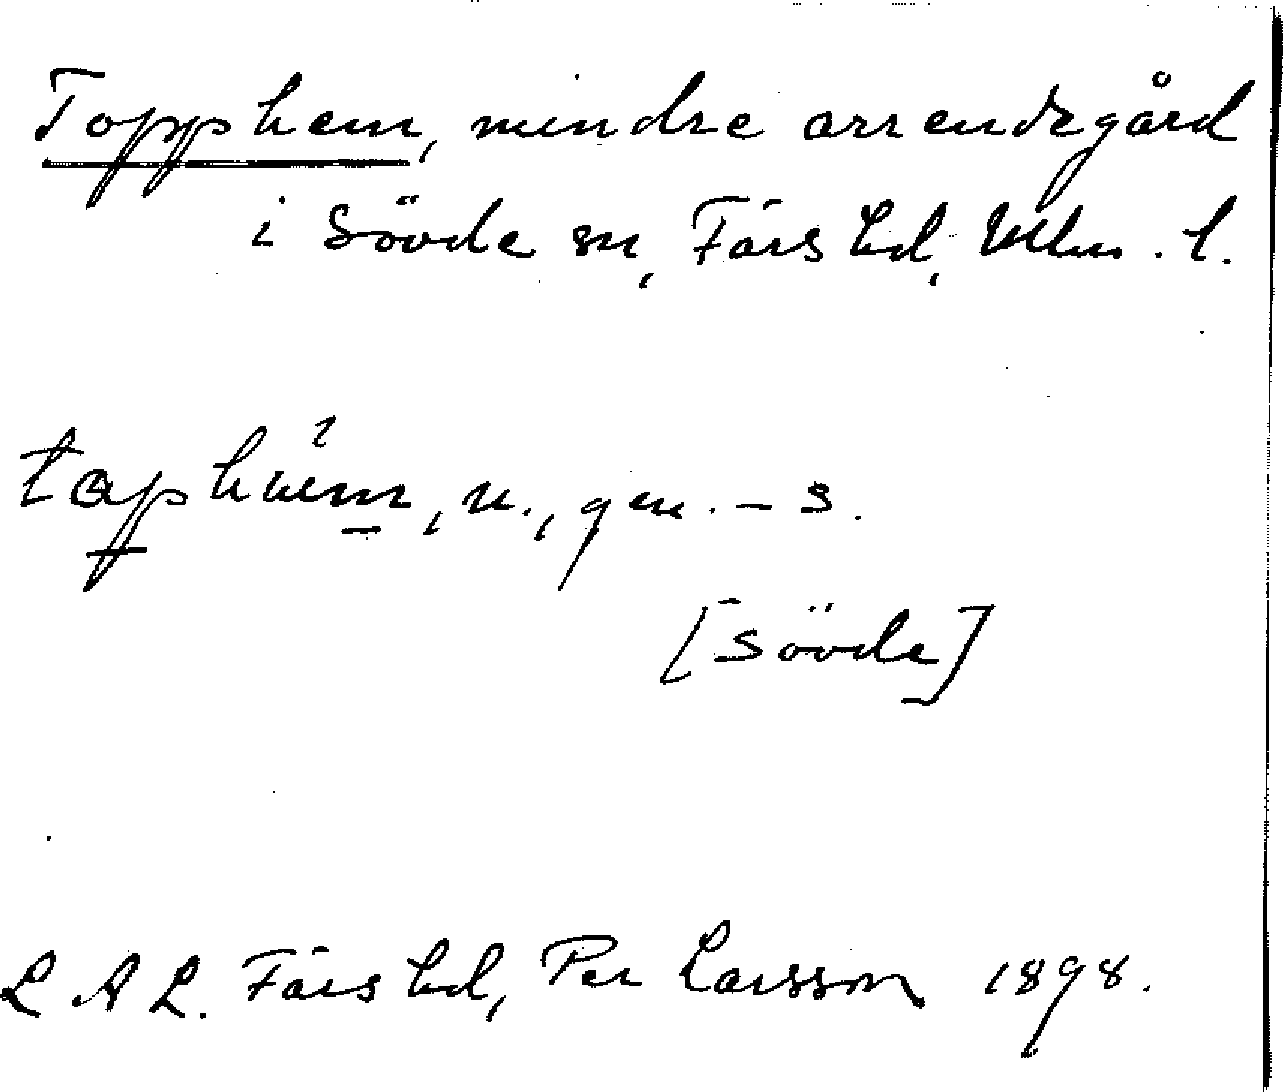 Topphem, mindre arrendegård
i Sövde sn, Färs hd, Mlm. l.
n., gen. - s.
[Sövde]
L A L. Färs hd, Per Larsson 1898.